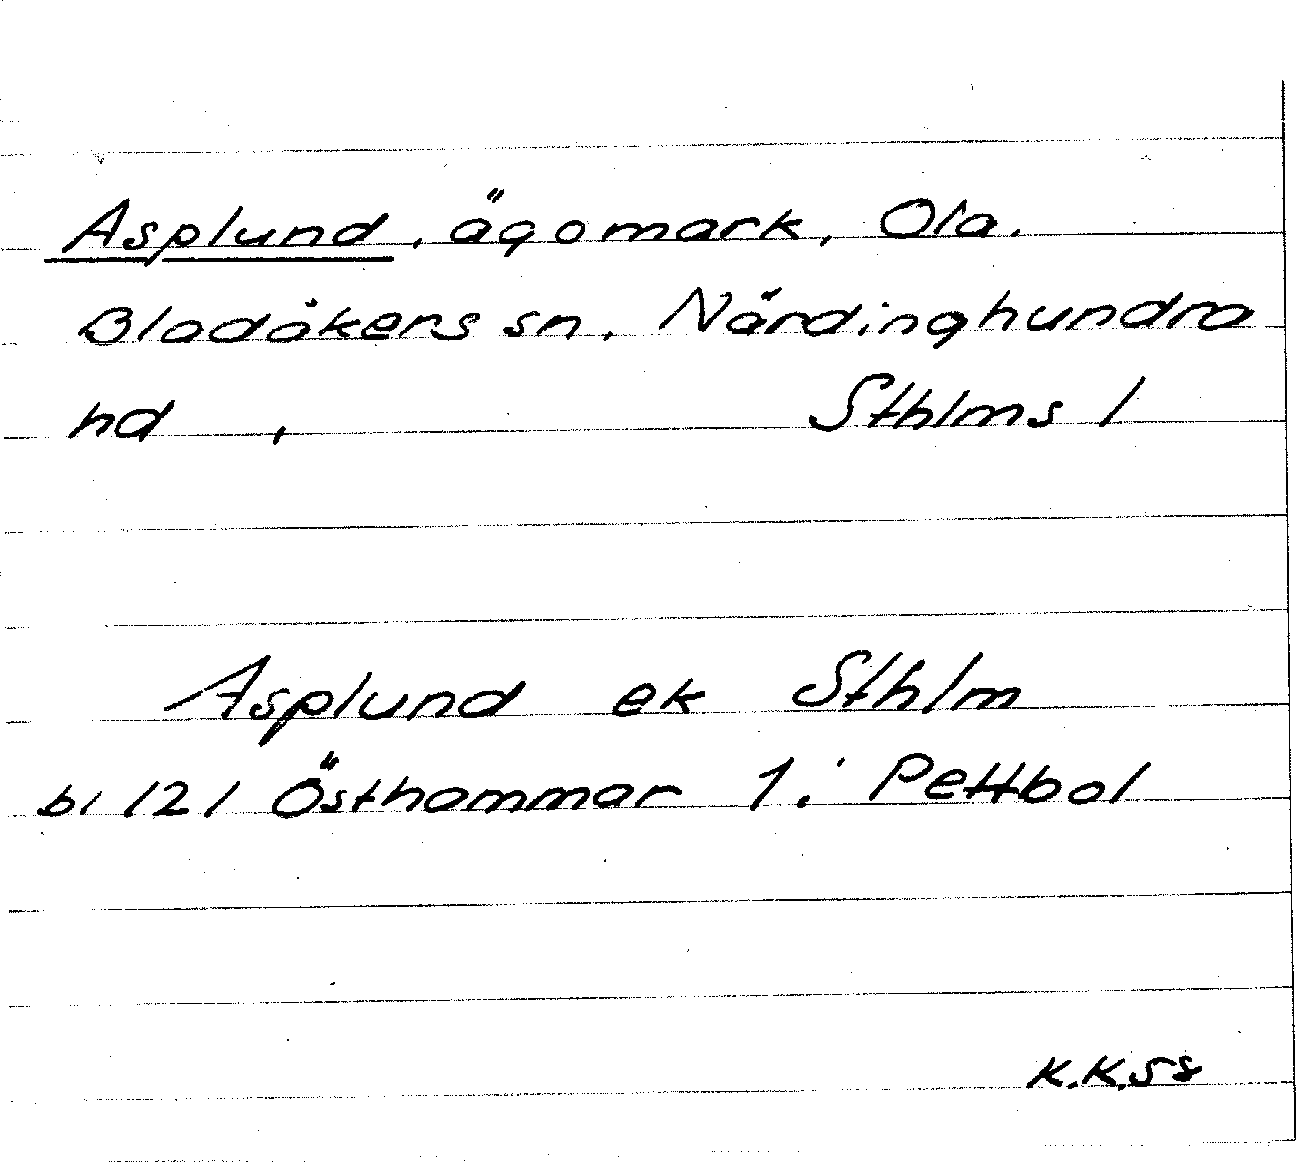 Asplund, ägomark, Ola.
Bladåkers sn, Närdinghundra
hd , Sthlms l
Asplund ek Sthlm
bl 121 Östhammar 1: Pettbol
K.K.58